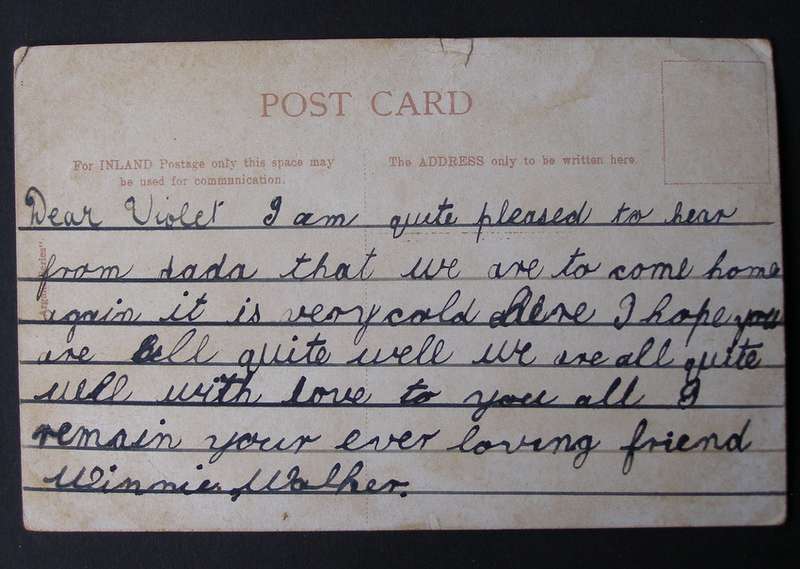 POST CARD
For INLAND Postage only this space may
be used for communication.
The ADDRESS only to be written here.
Dear Violet I am quite pleased to hear
from dada that we are to come home
again it is very cold here I hope you
are all quite well we are all quite
well with love to you all I
remain your ever loving friend
Winnie Walker.